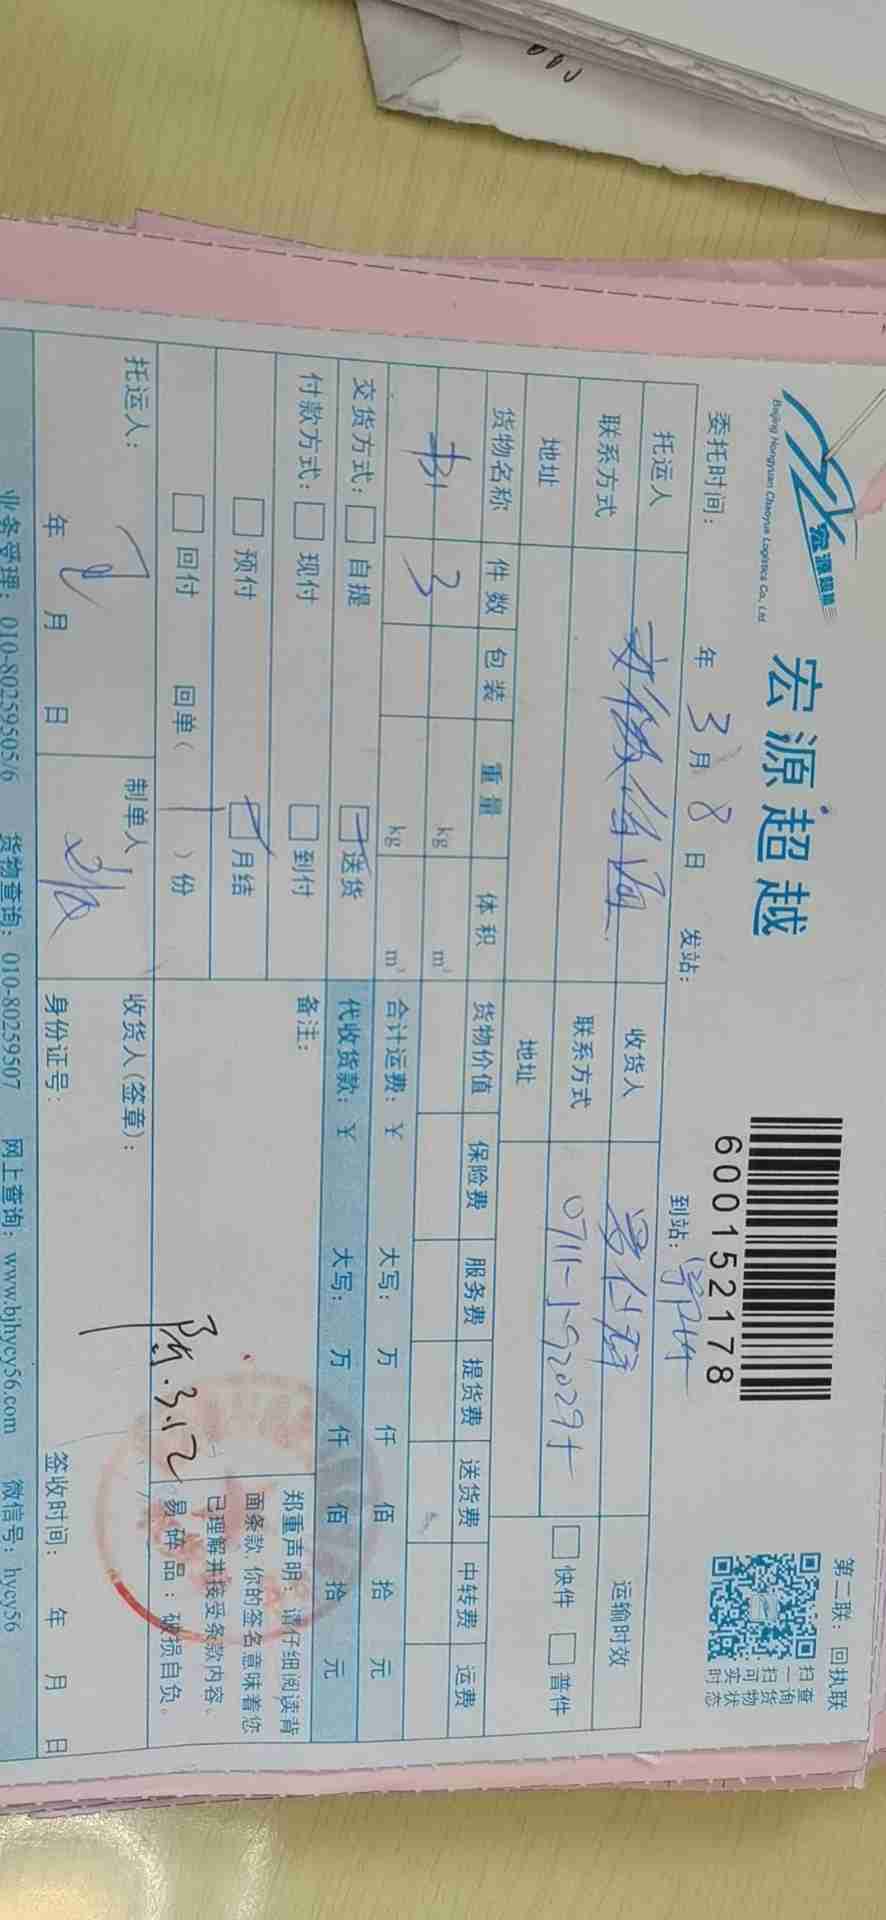 宏源超越
Beijing Hongyuan Chaoyue Logistics Co., Ltd.
宏源超越
6001152178
第二联：回执联
扫一扫可实时
查询货物状态
委托时间： 年 3 月 8 日 发站： 到站：鄂州
托运人 收货人 运输时效
联系方式 联系方式 0711-5920295 快件 普件
地址 地址
货物名称 件数 包装 重量 体积 货物价值 保险费 服务费 提货费 送货费 中转费 运费
书 3 kg m³
kg m³ 合计运费：¥ 大写： 万 仟 佰 拾 元
交货方式： 自提 送货 代收货款：¥ 大写： 万 仟 佰 拾 元
付款方式： 现付 到付 备注：
预付 月结
回付 回单（ 1 ）份
郑重声明：请仔细阅读背
面条款，你的签名意味着您
已理解并接受条款内容。
易碎品：破损自负。
托运人： 制单人 收货人(签章)： 陈.3.12
年 月 日 身份证号： 签收时间： 年 月 日
业务受理：010-80259505/6 货物查询：010-80259507 网上查询：www.bjhycy56.com 微信号：hycy56